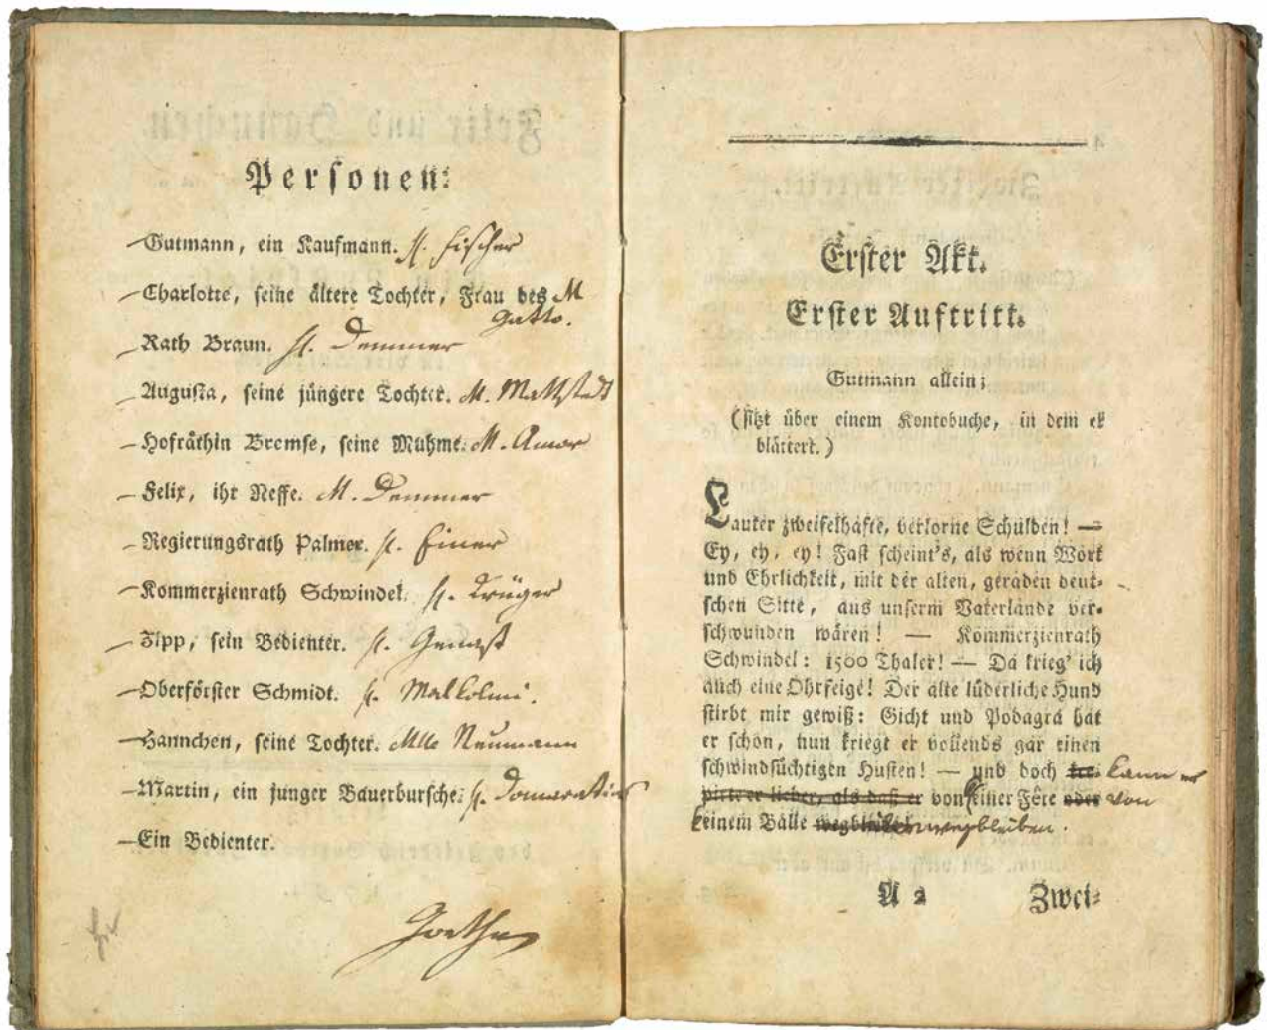 Personen:
Gutmann, ein Kaufmann. H. Fischer
Charlotte, seine ältere Tochter, Frau des M
Gatto.
Rath Braun. H. Demmer
Augusta, seine jüngere Tochter. M. Mattstedt
Hofräthin Bremse, seine Muhme. M. Amor
Felix, ihr Neffe. M. Demmer
Regierungsrath Palmer. H. Einer
Kommerzienrath Schwindel. H. Krüger
Zipp, sein Bedienter. H. Genast
Oberförster Schmidt. H. Malkolmi.
Hannchen, seine Tochter. Mlle Neumann
Martin, ein junger Bauerbursche. H. Domaratius
Ein Bedienter.
Goethe
Erster Akt.
Erster Auftritt.
Gutmann allein;
(sitzt über einem Kontobuche, in dem er
blättert.)
Lauter zweifelhafte, verlorne Schulden! —
Ey, ey, ey! Fast scheint's, als wenn Wort
und Ehrlichkeit, mit der alten, geraden deut-
schen Sitte, aus unserm Vaterlande ver-
schwunden wären! — Kommerzienrath
Schwindel: 1500 Thaler! — Da krieg' ich
auch eine Ohrfeige! Der alte lüderliche Hund
stirbt mir gewiß: Gicht und Podagra hat
er schon, nun kriegt er vollends gar einen
schwindsüchtigen Husten! — und doch kann er
pirte er lieber, als daß er von keiner Fete oder von
keinem Balle wegbleiben.
A 2 Zwei-